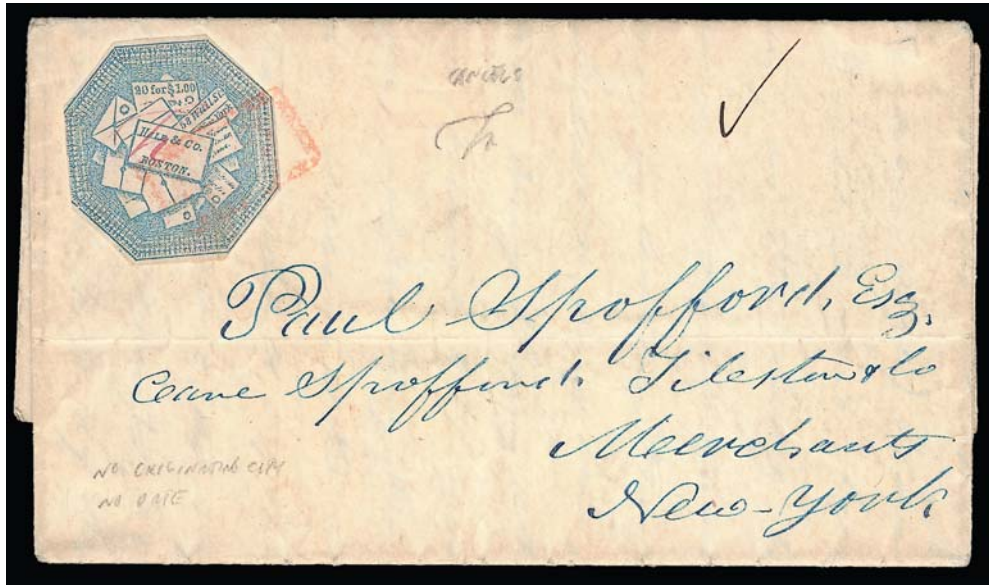 20 for $1.00
Wall St.
HALE & CO.
BOSTON.
CANCELS
Paul Spofford, Esq.
Care Spofford Tileston & Co
Merchants
New-York
NO ORIGINATING CITY
NO DATE